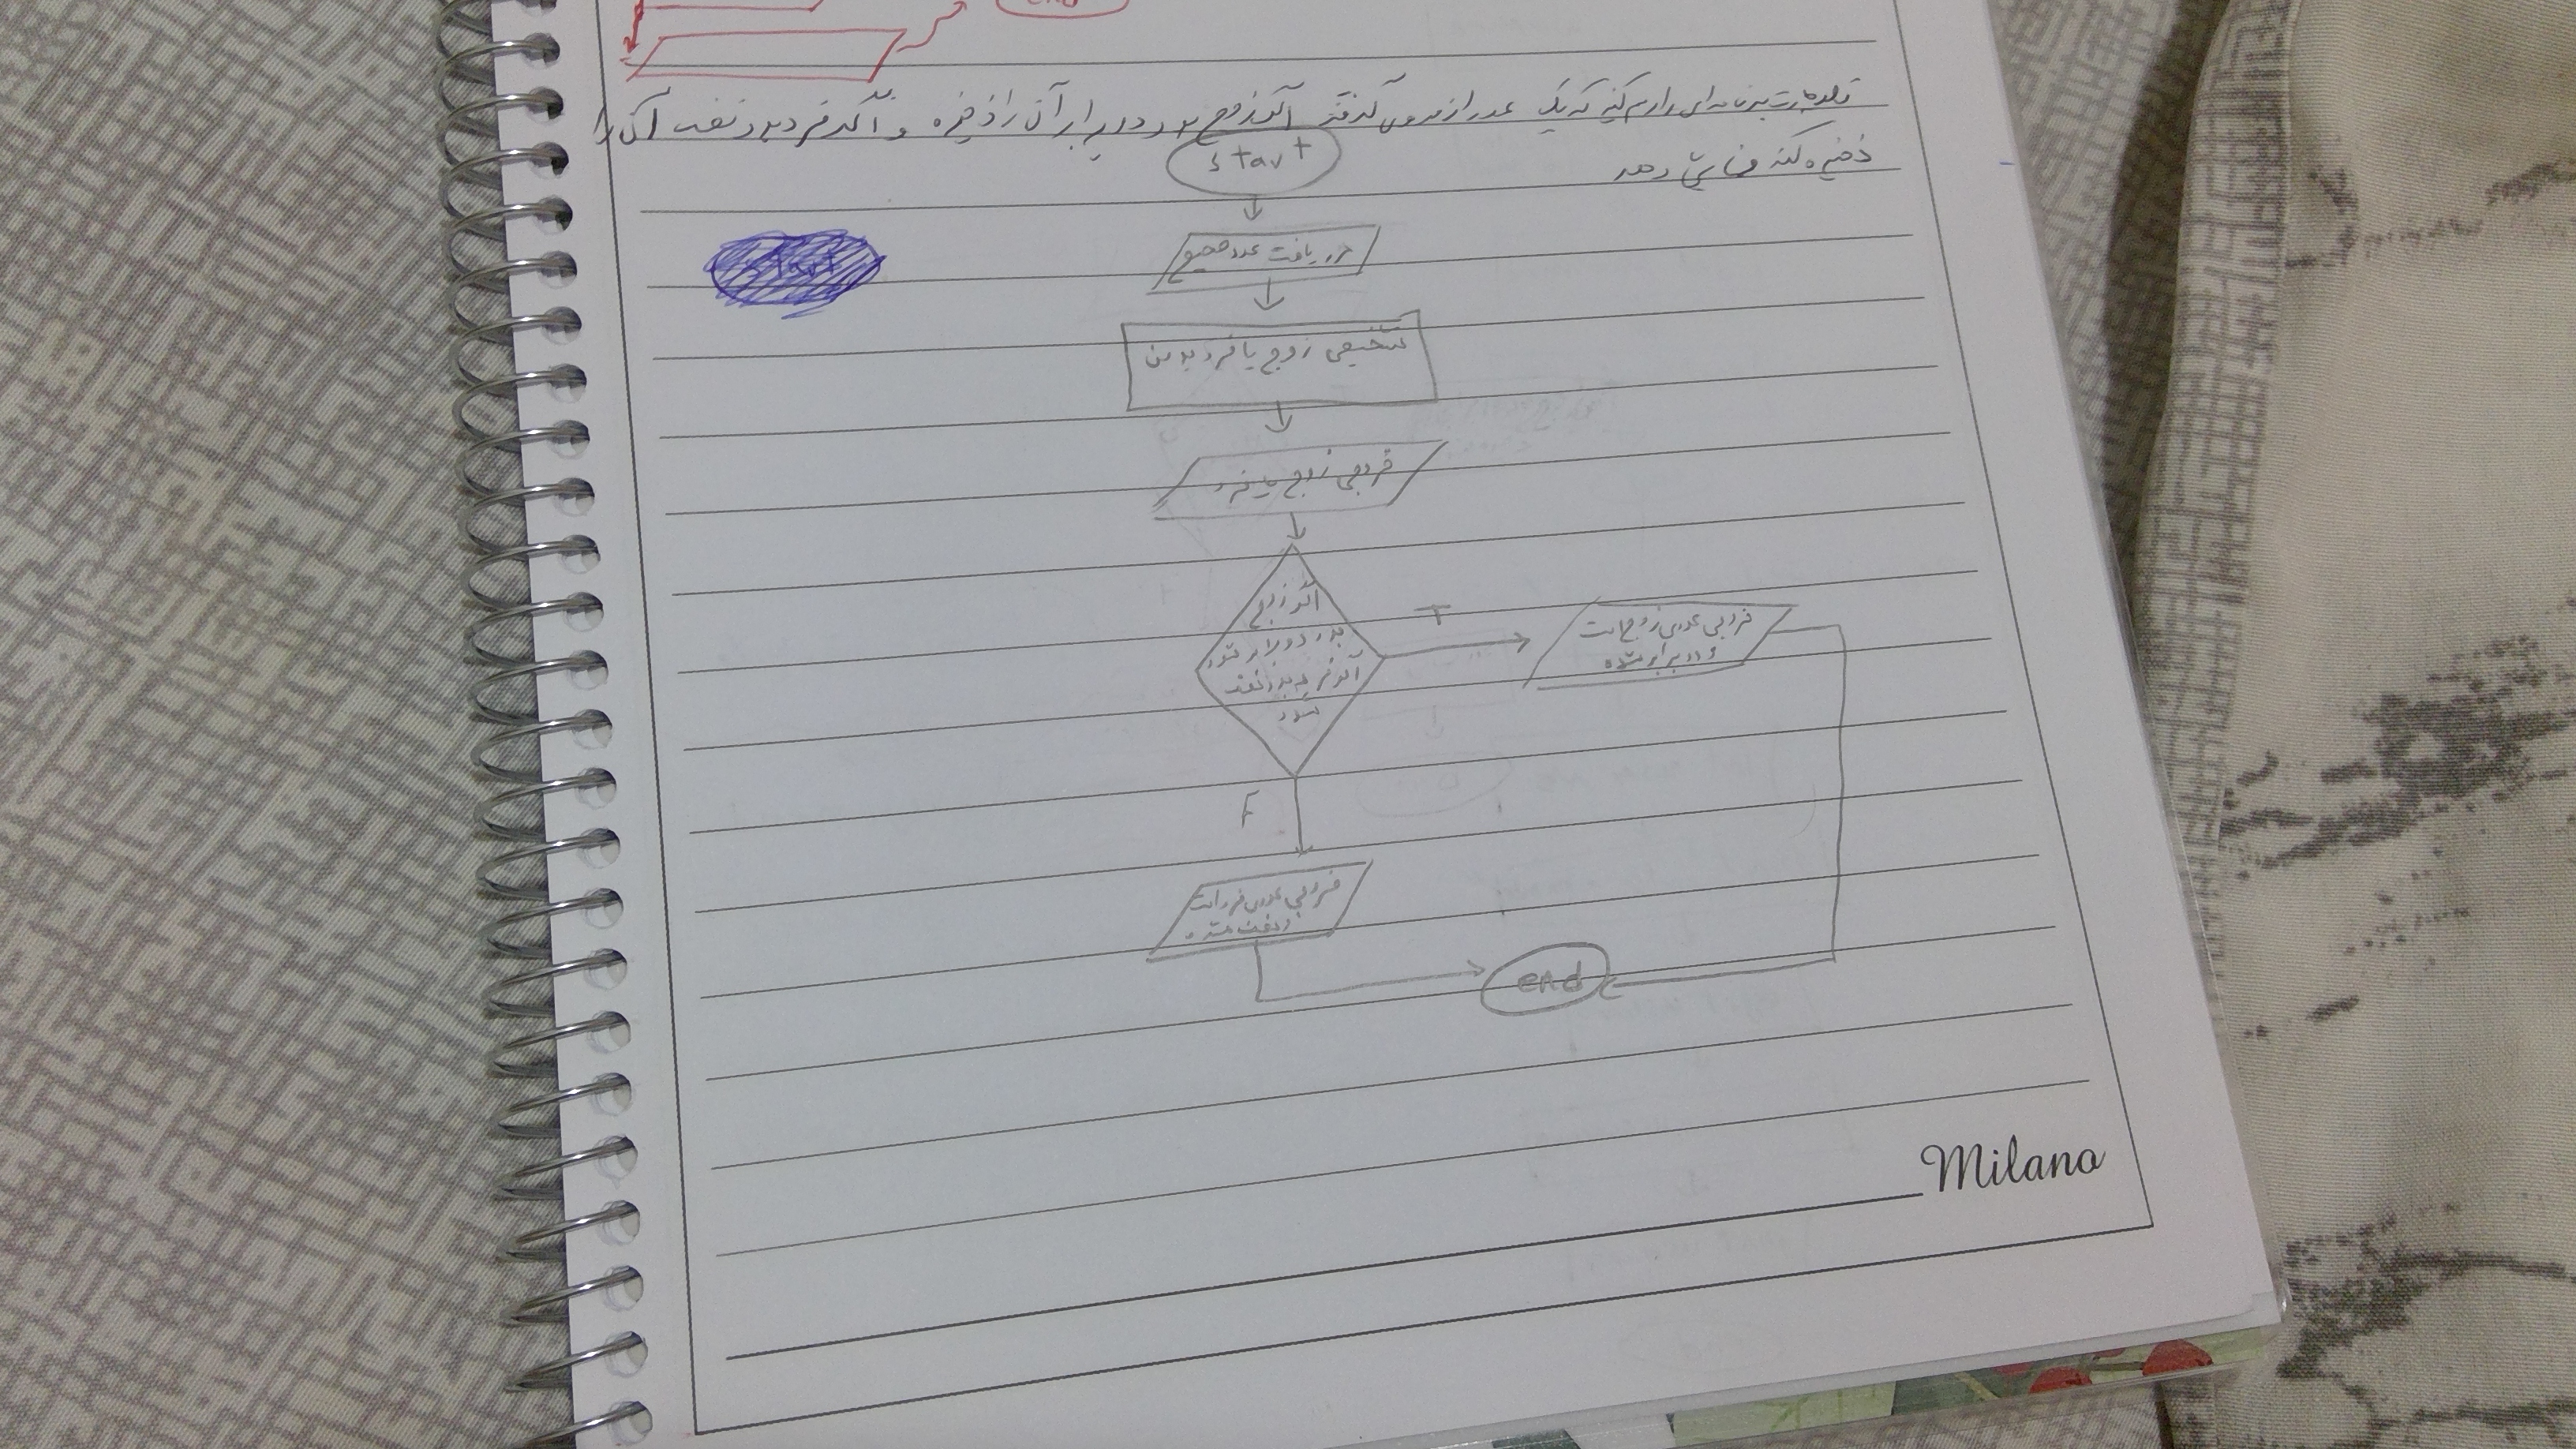 end
فلوچارت برنامه‌ای رارسم کنید که یک عدد را از ورودی گرفته اگر زوج بود دو برابر آن را ذخیره و اگر فرد بود نصف آن را
ذخیره کند نمایش دهد
start
دریافت عدد صحیح
تشخیص زوج یا فرد بودن
خروجی زوج یا فرد
اگر زوج
بود دو برابر شود
اگر فرد بود نصف
شود
T
خروجی عددی زوج است
و دو برابر شده
F
خروجی عددی فرد است
و نصف شده
end
Milano